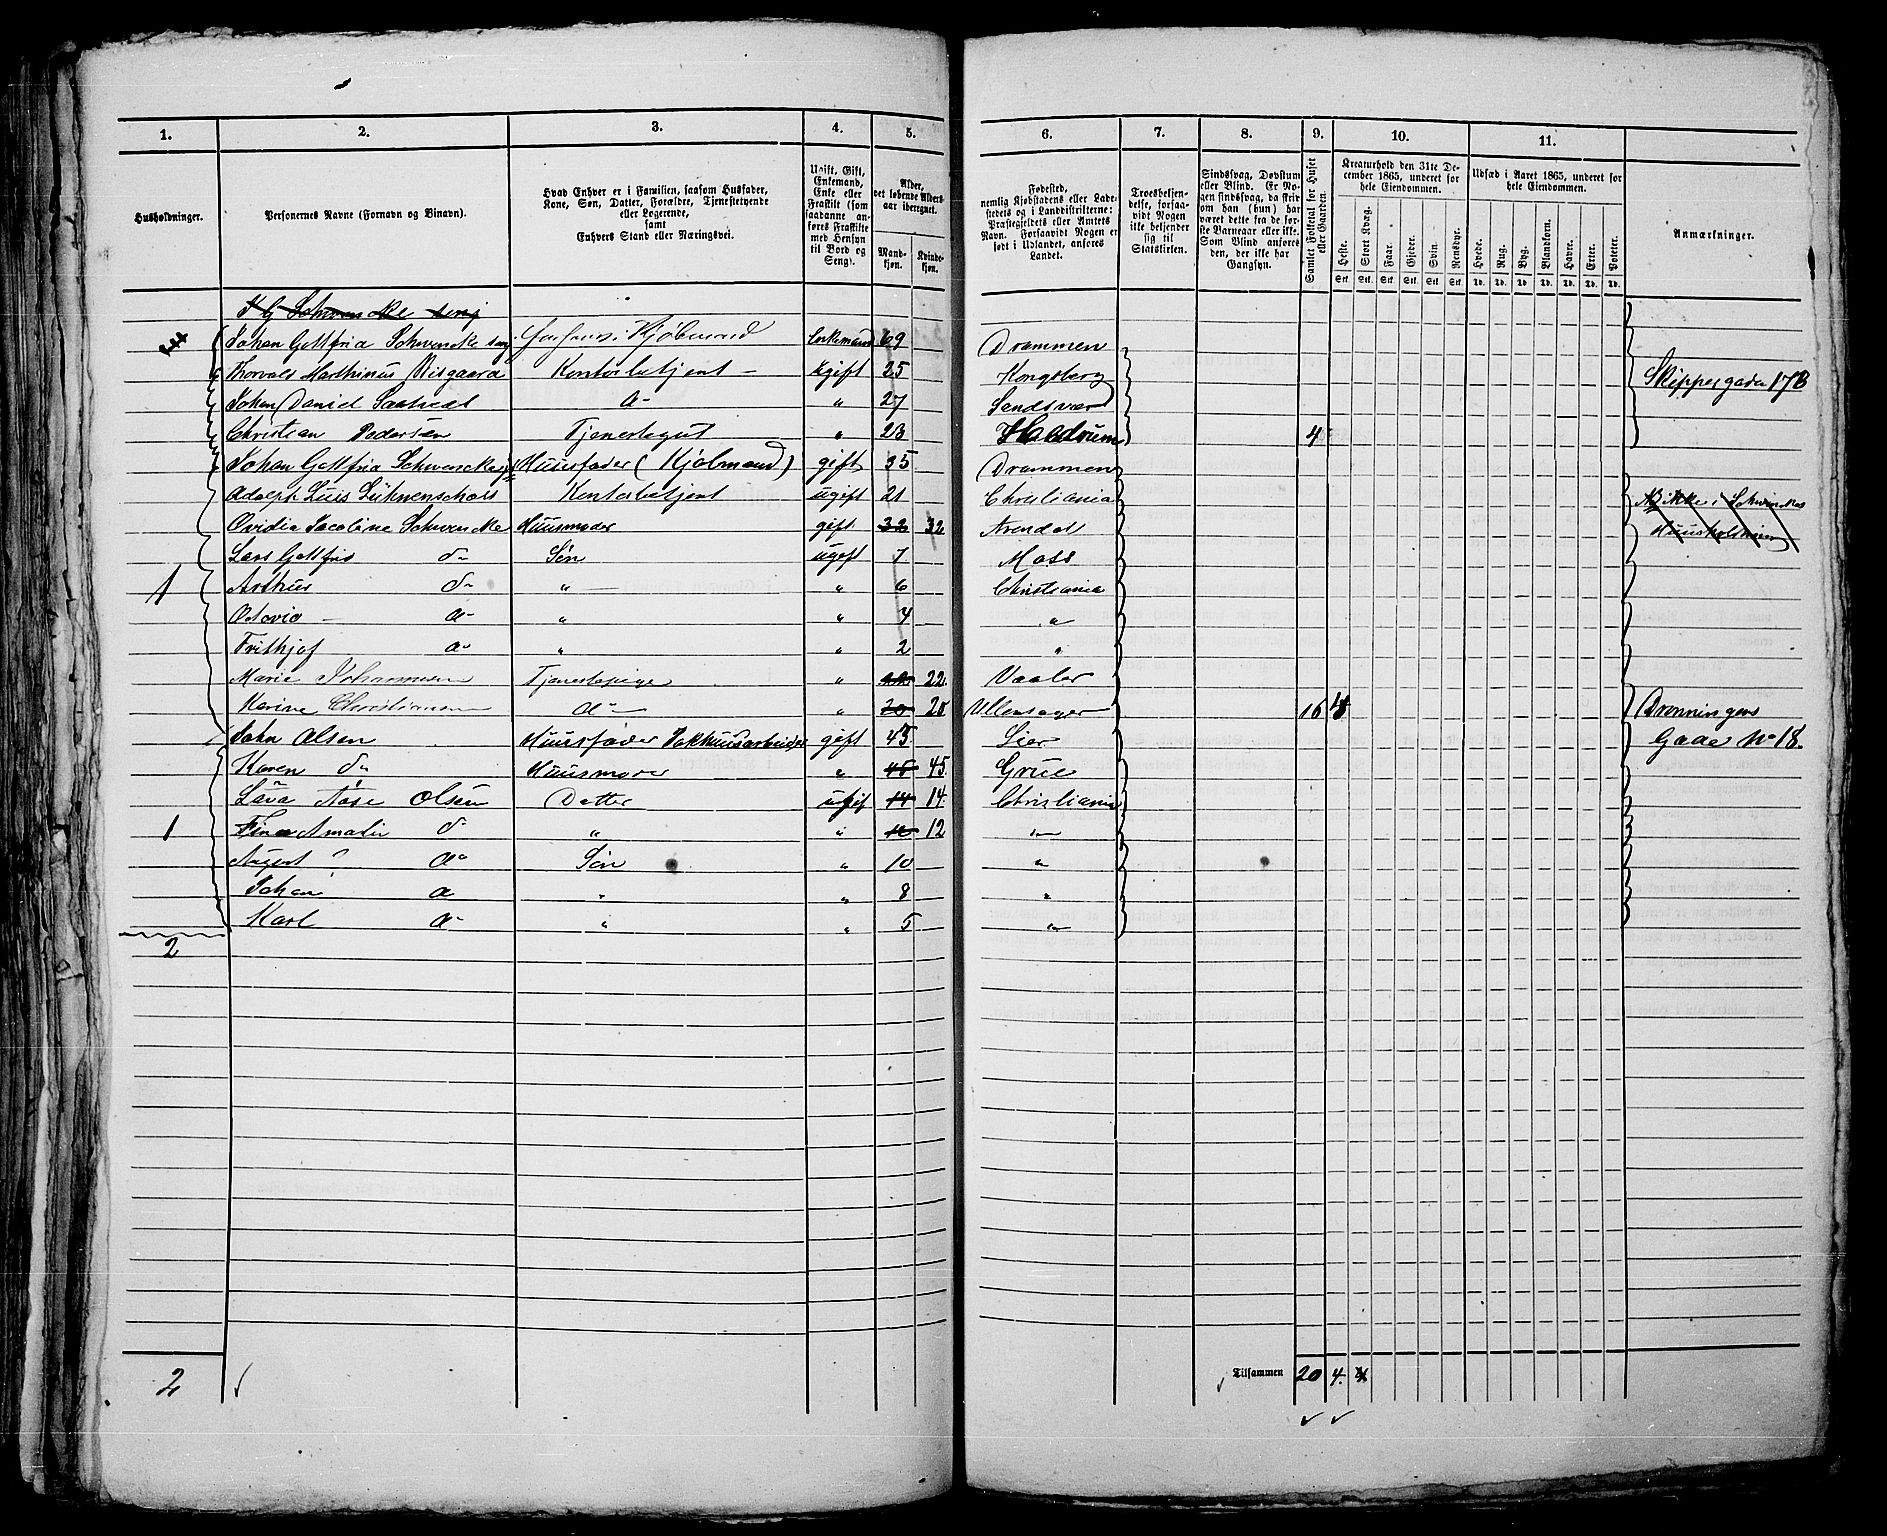 1.
2.
3.
4.
5.
6.
7.
8.
9.
10.
11.
Husholdninger.
Personernes Navne (Fornavn og Binavn).
Hvad Enhver er i Familien, saasom Husfader,
Kone, Søn, Datter, Forældre, Tjenestetyende
eller Logerende,
samt
Enhvers Stand eller Næringsvei.
Ugift, Gift,
Enkemand,
Enke eller
Fraskilt (som
saadanne an-
føres Fraskilte
med Hensyn
til Bord og
Seng).
Alder,
det løbende Alders-
aar iberegnet.
Mand-
kjøn.
Kvinde-
kjøn.
Fødested,
nemlig Kjøbstadens eller Lade-
stedets og i Landdistrikterne:
Præstegjeldets eller Amtets
Navn. Forsaavidt Nogen er
født i Udlandet, anføres
Landet.
Troesbekjen-
delse, forsaa-
vidt Nogen
ikke bekjender
sig til
Statskirken.
Sindssvag, Døvstum
eller Blind. Er No-
gen sindssvag, da skriv
om han (hun) har
været dette fra de før-
ste Barneaar eller ikke.
Som Blind anføres
den, der ikke har
Gangsyn.
Samlet Folketal for Huset
eller Gaarden.
Kreaturhold den 31te De-
cember 1865, underet for
hele Eiendommen.
Heste. Stort Kvæg. Faar. Gjeder. Svin. Rensdyr.
Stk. Stk. Stk. Stk. Stk. Stk.
Udsæd i Aaret 1865, underet for
hele Eiendommen.
Hvede. Rug. Byg. Blandkorn. Havre. Erter. Poteter.
Td. Td. Td. Td. Td. Td. Td.
Anmærkninger.
Schwencke
Johan Gottfrid Schwencke Kjøbmand Enkemand 69 Drammen
Thorvald Marthinus Riisgaard Kontorbetjent ugift 25 Kongsberg Skippergaden 17B
Johan Daniel d- " 27 Sandsvær
Christian Pedersen Tjenestegut " 23 4
Johan Gottfrid Schwencke Huusfader (Kjøbmand) gift 35 Drammen
Adolph Luis Kontorbetjent ugift 21 Christiania Ikke i Schwenckes
Ovidia Jacobine Schwencke Huusmoder gift 32 32 Arendal Huusholdning
Lars Gottfrid d- Søn ugift 7 Moss
1 Arthur d- " 6 Christiania
Octavio d- " " 4 "
Frithjof d- " " 2 "
Marie Johannesen Tjenestepige " 22. Vaaler
Karine Christiansen d- " 20 20 Ullensager 16 4 Dronningens
John Olsen Huusfader Pakhuusarbeider gift 45 Lier Gade No 18.
Karen d- Huusmoder " 45 45. Grue
Olsen Datter ugift 14 14. Christiania
1 Amalie d- " " 12 "
August d- Søn " 10 "
Johan d " " 8 "
Karl d- " " 5 "
2
2
Tilsammen 20 4.